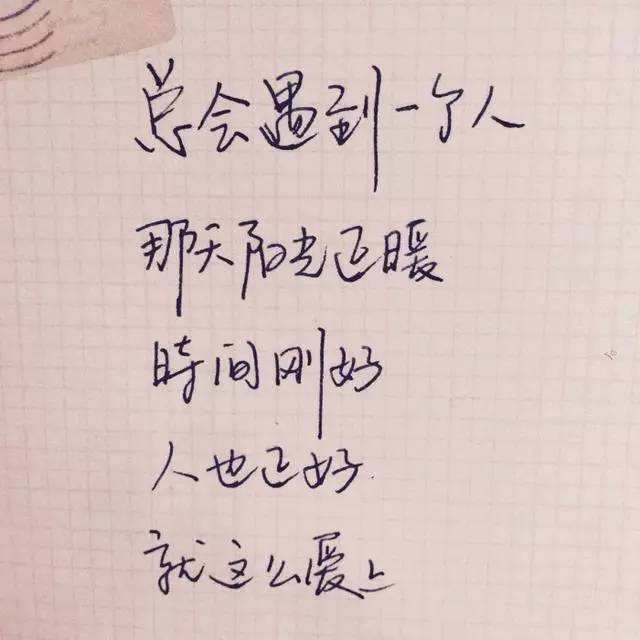 总会遇到一个人
那天阳光正暖
時间刚好
人也正好
就这么爱上